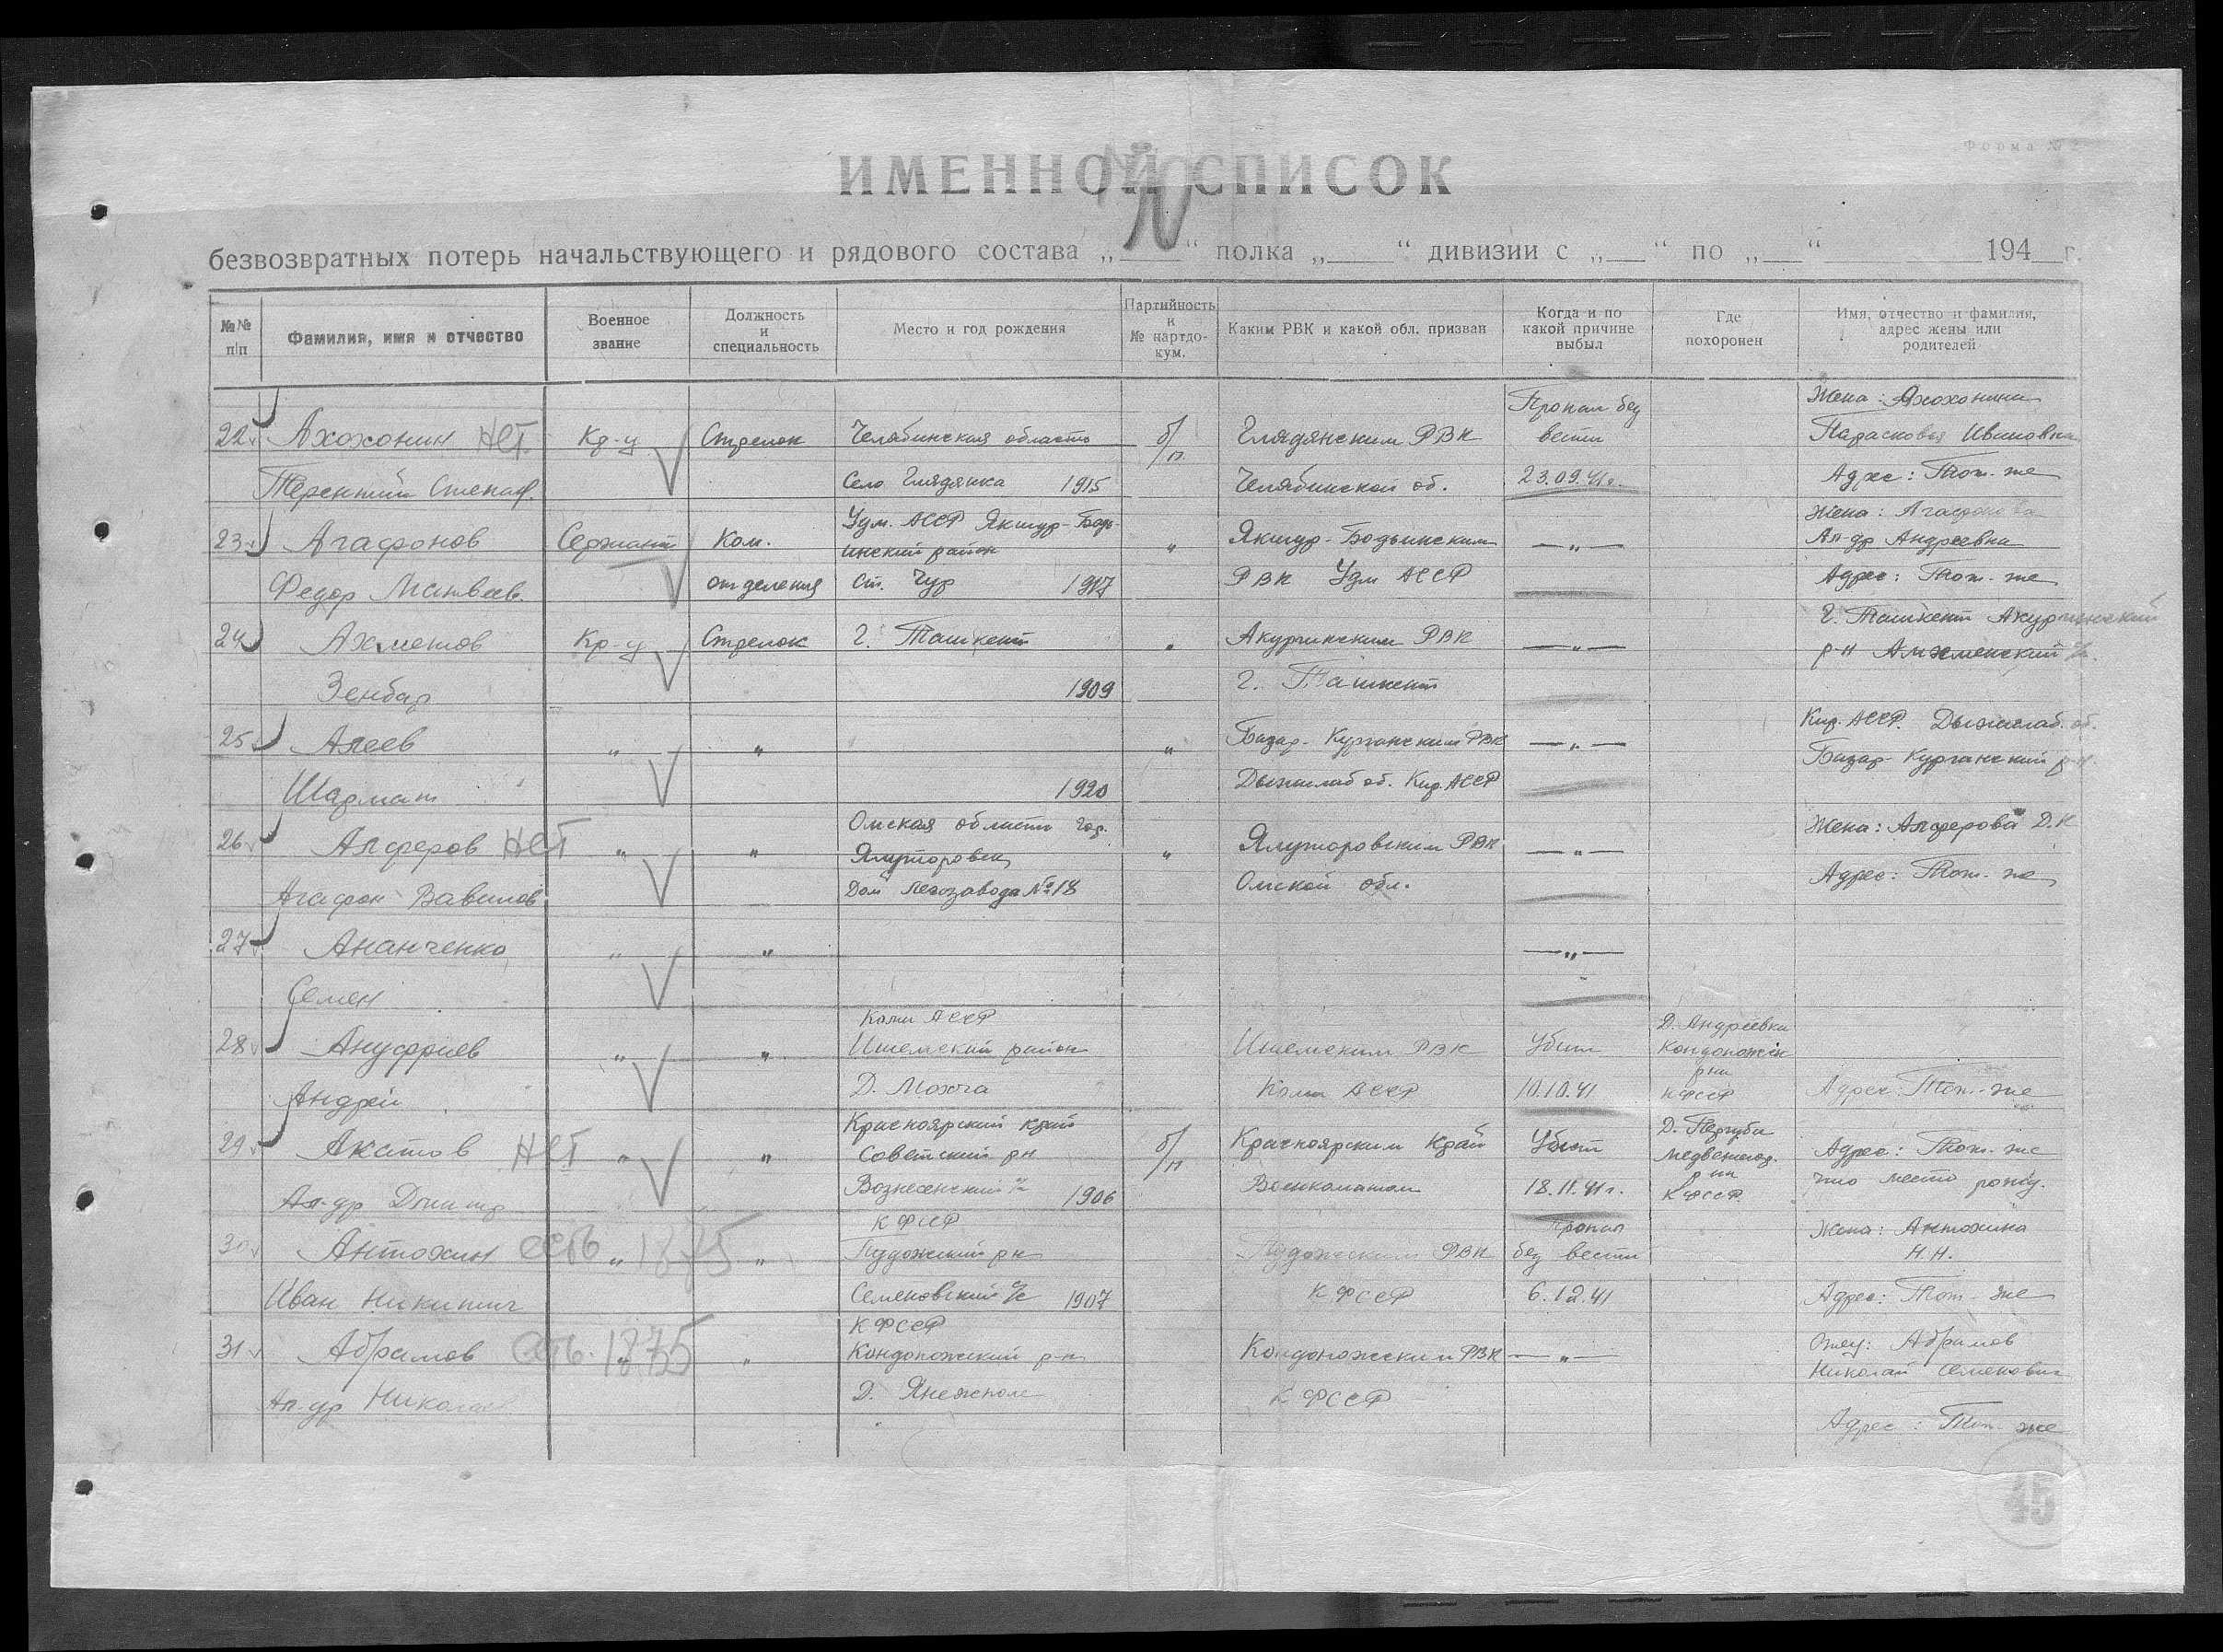 Форма №
ИМЕННОЙ СПИСОК
безвозвратных потерь начальствующего и рядового состава „ “ полка „ “ дивизии с „ “ по „ “ 194 г.
№№ п/п
Фамилия, имя и отчество
Военное звание
Должность и специальность
Место и год рождения
Партийность и № партдокум.
Каким РВК и какой обл. призван
Когда и по какой причине выбыл
Где похоронен
Имя, отчество и фамилия, адрес жены или родителей
22 Ахохонин нет Кр-ц Стрелок Челябинская область б/п Глядянским РВК Пропал без вести Жена: Ахохонина
Парасковья Ивановна
Терентий Степан. Село Глядянка 1915 Челябинской об. 23.09.41г. Адрес: Там-же
23 Агафонов Сержант Ком. Удм. АССР Якшур-Бодьинский район „ Якшур-Бодьинским —„— Жена: Агафонова
Ал-др. Андреевна
Федор Матвеев. отделения ст. Чур 1917 РВК Удм АССР Адрес: Там-же
24 Ахметов Кр-ц Стрелок г. Ташкент „ РВК —„— г. Ташкент
р-н
1909 г. Ташкент
25 Алеев „ „ „ Базар-Курганским РВК —„— Кир. АССР.
Базар-Курганский р-н
Шармат 1920 об. Кир. АССР
26 Алферов нет „ „ Омская область гор. Ялуторовск „ Ялуторовским РВК —„— Жена: Алферова Д.К
Агафон Вавилов. Дом Лесозавода №18 Омской обл. Адрес: Там-же
27 Ананченко „ „ —„—
Семен
28 Ануфриев „ „ Коми АССР
Ижемский район Ижемским РВК Убит Д. Андреевка
Кондопожск
р-на
Андрей Д. Мохча Коми АССР 10.10.41 КФССР Адрес: Там-же
29 Акатов нет „ „ Красноярский край
Советский рн б/п Красноярским Край Убит Д. Пергуба
Медвежьегор.
р-на Адрес: Там-же
Ал-др Дмитр Вознесенский с/с 1906 Военкоматом 18.11.41г. КФССР. что место рожд.
30 Антохин есть „ 1875 „ КФССР
Пудожский рн Пудожским РВК Пропал
без вести Жена: Антохина
Н.Н.
Иван Никитич Семеновский с/с 1907 КФССР 6.12.41 Адрес: Там-же
31 Абрамов есть. 1875 „ „ КФССР
Кондопожский р-н Кондопожским РВК —„— Отец: Абрамов
Николай Семенович
Ал-др Николаев Д. КФССР
Адрес: Там-же
45